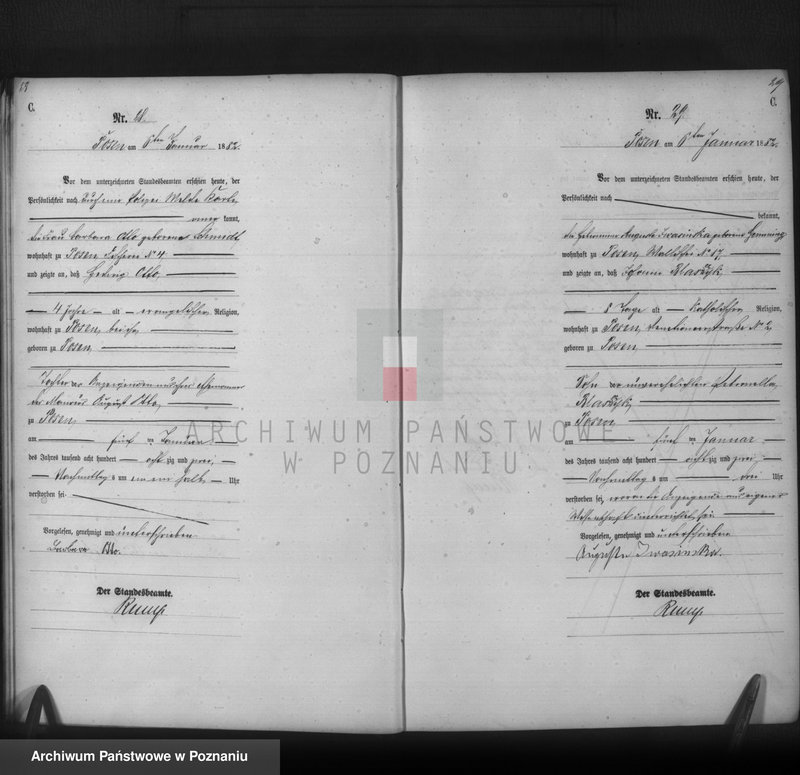 C.
Nr. 28.
Posen am 6ten Januar 1882.
Vor dem unterzeichneten Standesbeamten erschien heute, der
Persönlichkeit nach durch
kannt,
die Frau Barbara Otto geborene Schmidt
wohnhaft zu Posen Fischerei No 4
und zeigte an, daß Hedwig Otto,
4 Jahre alt evangelischer Religion,
wohnhaft zu Posen bei ihr,
geboren zu Posen
Tochter der Anzeigenden und ihres Ehemannes
des Maurers August Otto
zu Posen
am fünften Januar
des Jahres tausend acht hundert achtzig und zwei,
Nachmittags um ein halb Uhr
verstorben sei.
Vorgelesen, genehmigt und unterschrieben
Barbara Otto.
Der Standesbeamte.
Rump
29
C.
Nr. 29.
Posen am 6ten Januar 1882.
Vor dem unterzeichneten Standesbeamten erschien heute, der
Persönlichkeit nach
bekannt,
die Hebamme Auguste Iwasinska geborene
wohnhaft zu Posen, Wallischei No 17
und zeigte an, daß Johann
8 Tage alt katholischer Religion,
wohnhaft zu Posen, No 2
geboren zu Posen
Sohn der unverehelichten Petronella
zu Posen
am fünften Januar
des Jahres tausend acht hundert achtzig und zwei
Nachmittags um drei Uhr
verstorben sei, wovon die Anzeigende aus eigener
Wissenschaft unterrichtet sei.
Vorgelesen, genehmigt und unterschrieben
Auguste Iwasinska.
Der Standesbeamte.
Rump
ARCHIWUM PAŃSTWOWE
W POZNANIU
Archiwum Państwowe w Poznaniu